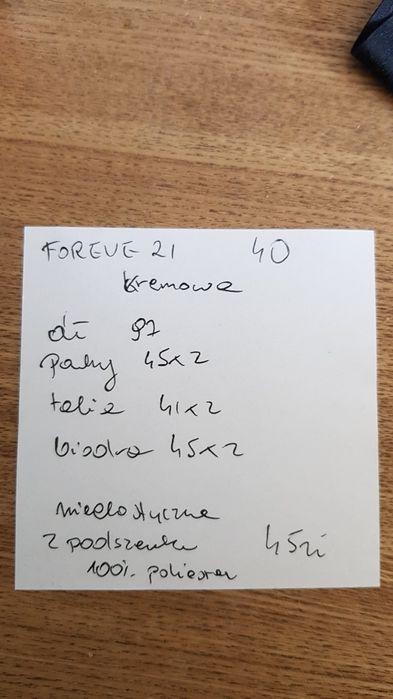 FOREVE 21 40
kremowa
dł 97
pachy 45x2
talia 41x2
biodra 45x2
nieelastyczna
z podszewką 45zł
100% poliester